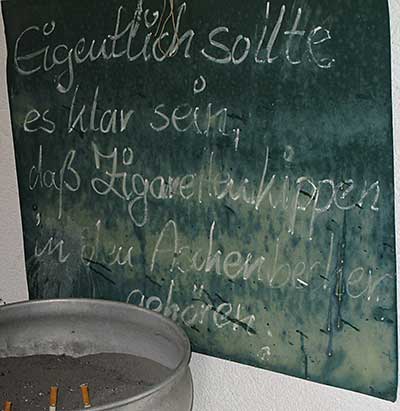 Eigentlich sollte
es klar sein,
daß Zigarettenkippen
in den Aschenbecher
gehören.